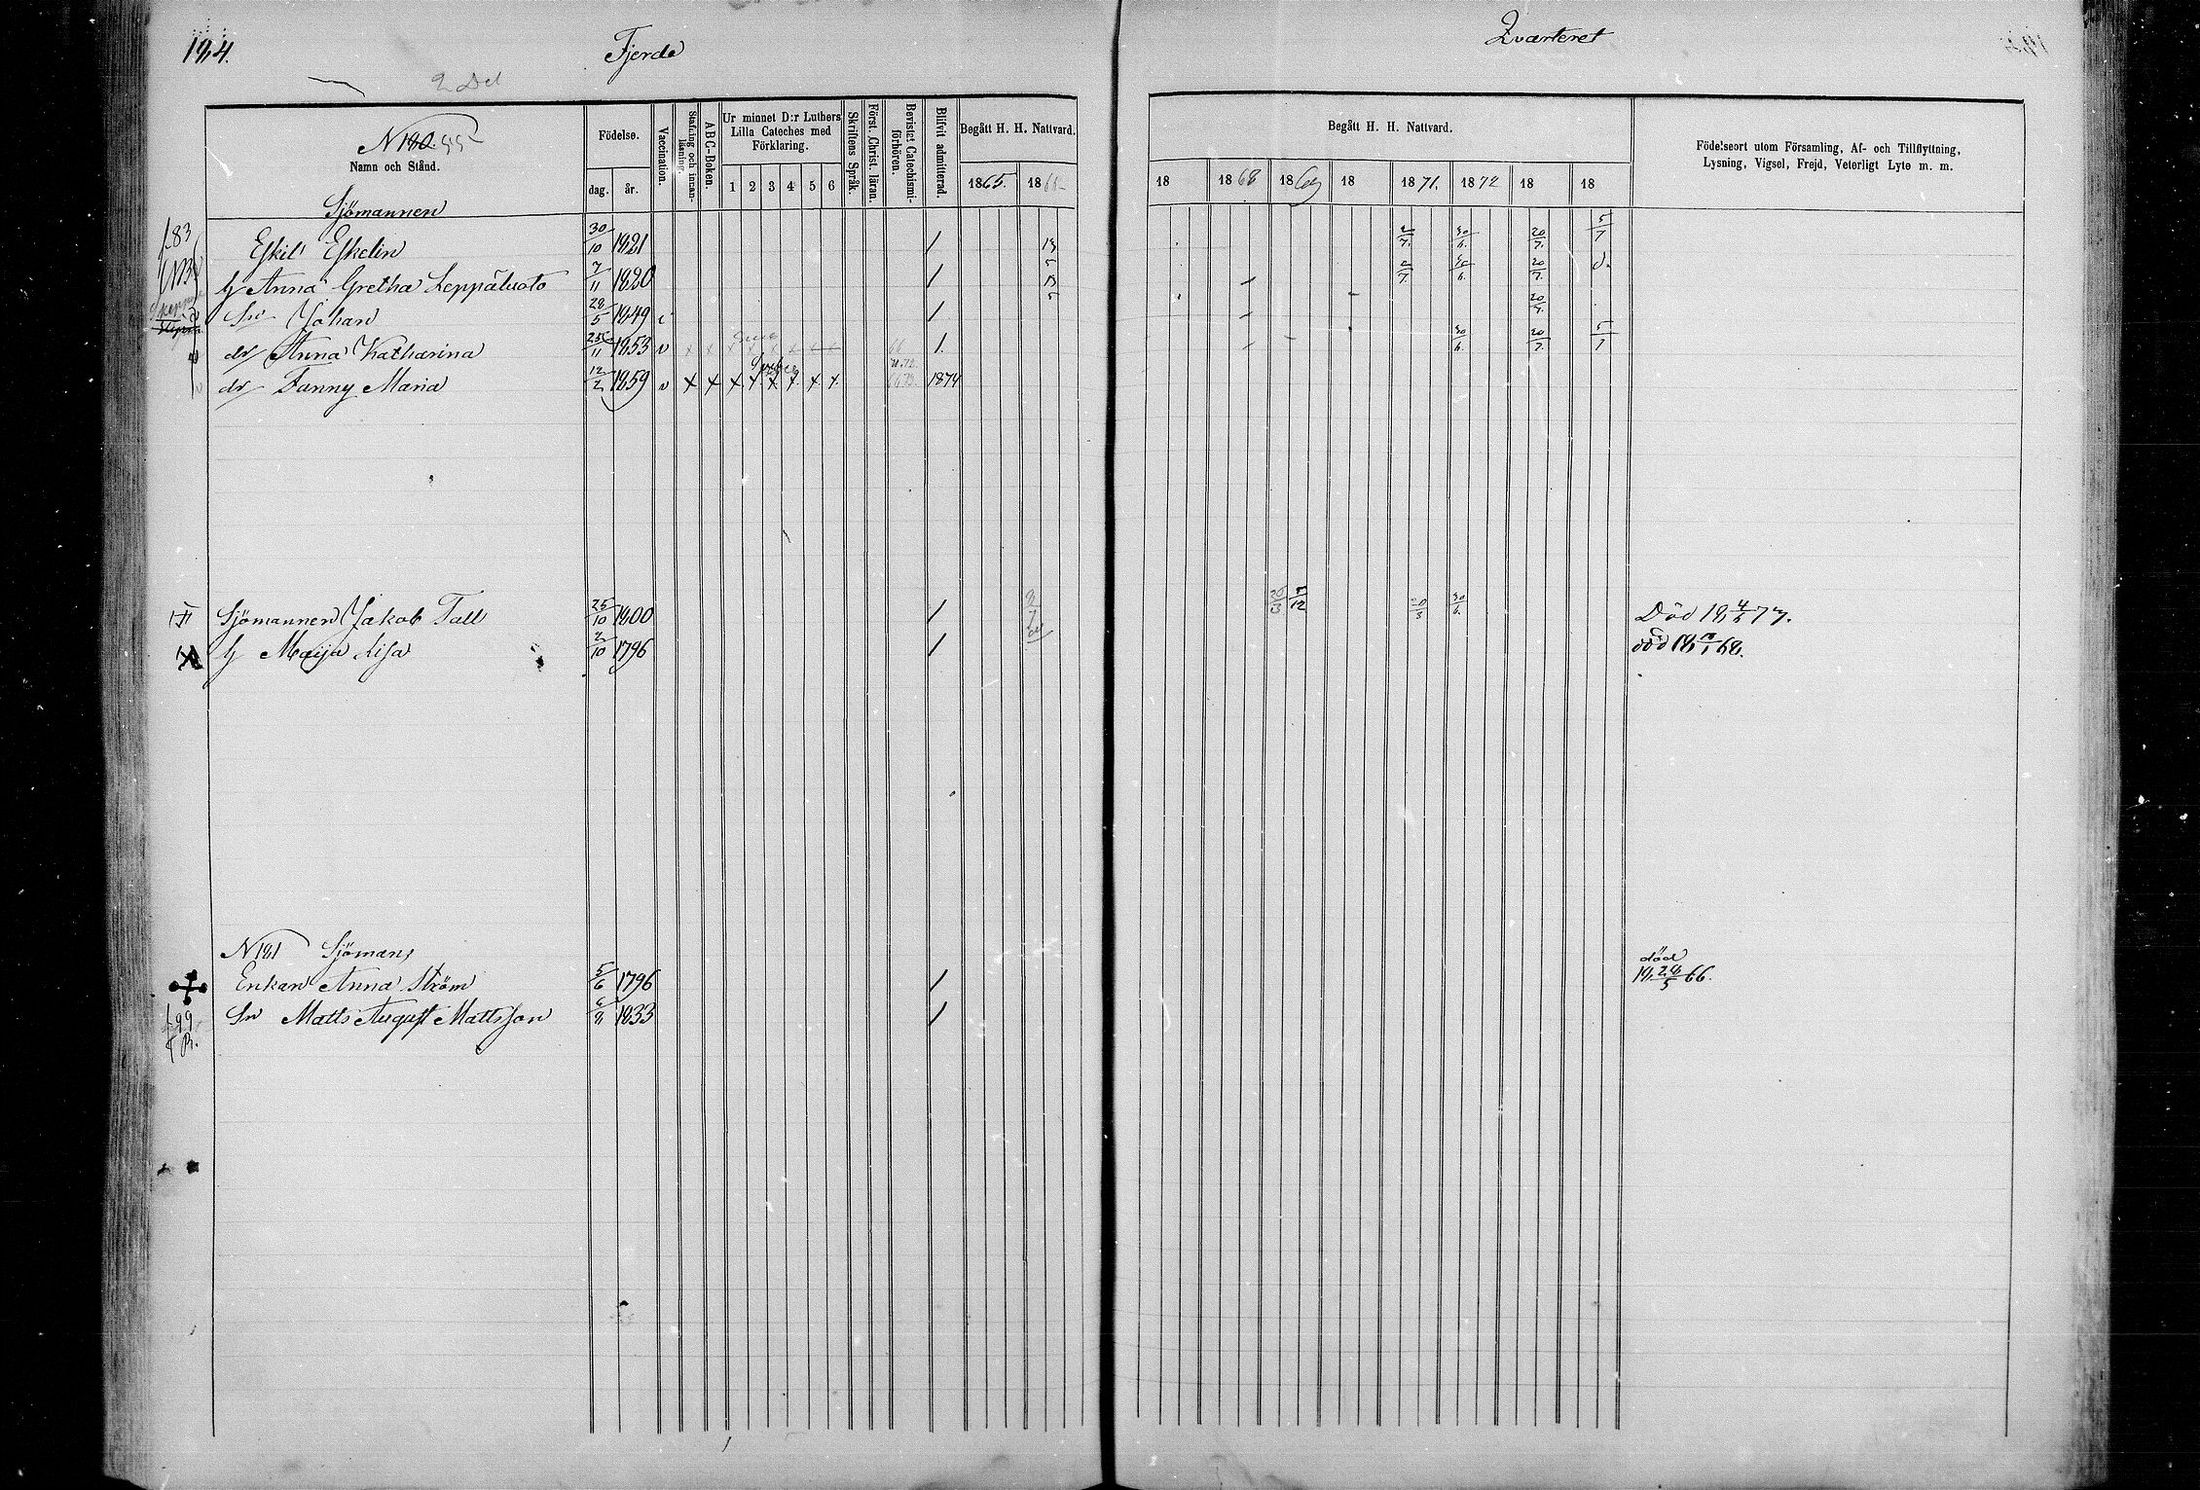 184.
Fjerde
Qvarteret
2 Del
N 180. 552
Namn och Stånd.
Födelse.
dag.
år.
Vaccination.
Stafning och innan-läsning.
ABC-Boken.
Ur minnet D:r Luthers
Lilla Cateches med
Förklaring.
1 2 3 4 5 6
Skriftens Språk.
Först. Christ. läran.
Bevistat Catechismi-förhören.
Blifvit admitterad.
Begått H. H. Nattvard.
1865. 1866
Begått H. H. Nattvard.
18 1868 1869 18 1871. 1872 18 18
Födelseort utom Församling, Af- och Tillflyttning,
Lysning, Vigsel, Frejd, Veterligt Lyte m. m.
Sjömannen
f.83 Eskil Eskelin 30/10 1821 / 2/7. 30/6. 20/7. 5/7
NB h Anna Gretha Leppäluoto 7/11 1820 / 2/7. 30/6. 20/7. d.
Sn Johan 28/5 1849 v / 20/7.
dr Anna Katharina 25/11 1853 v 1. 30/6. 20/7. 5/7
dr Fanny Maria 12/2 1859 v x x x x x x x x 1874
Sjömannen Jakob Tall 25/10 1800 / 7/12 30/6. Död 18 4/5 77.
h Maija Lisa 2/10 1796 / död 18 /1 68.
N 181 Sjömans
Enkan Anna Ström 5/6 1796 / död 18 28/5 66.
f.99 Sn Matts August Mattsson 6/8 1833 /